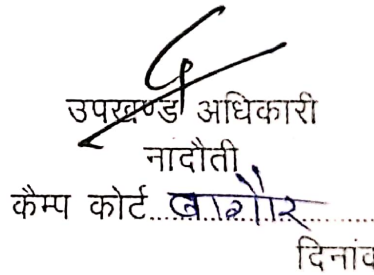 उपखण्ड अधिकारी
नादौती
कैम्प कोर्ट.....................
दिनांक